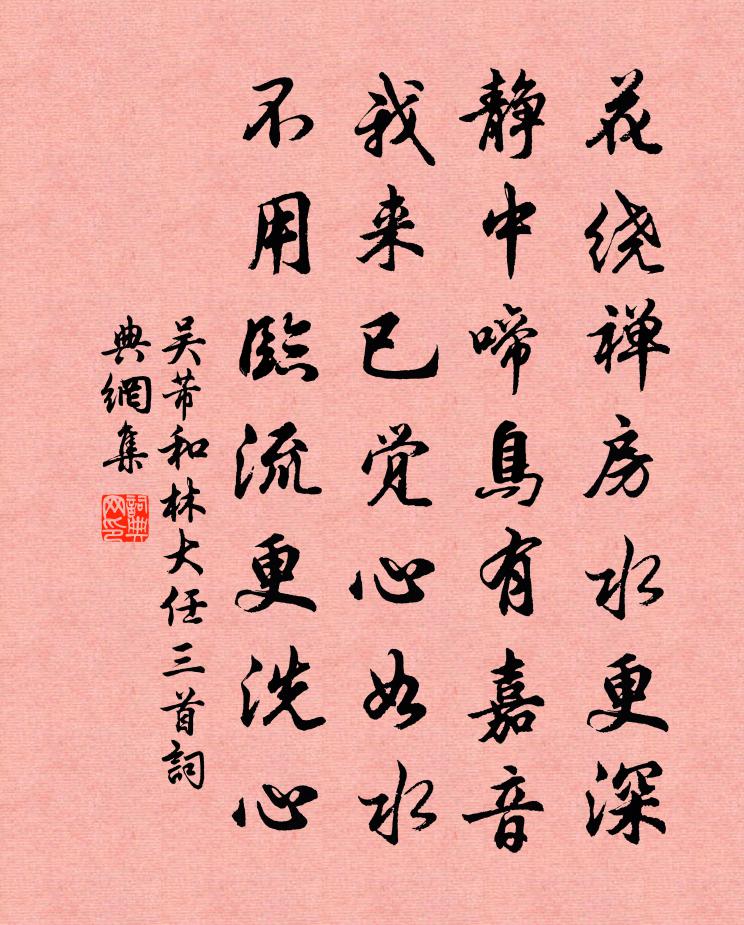 花绕禅房水更深
静中啼鳥有嘉音
我来已觉心如水
不用臨流更洗心
吴芾和林大任三首詞
典網集
詞典
网印